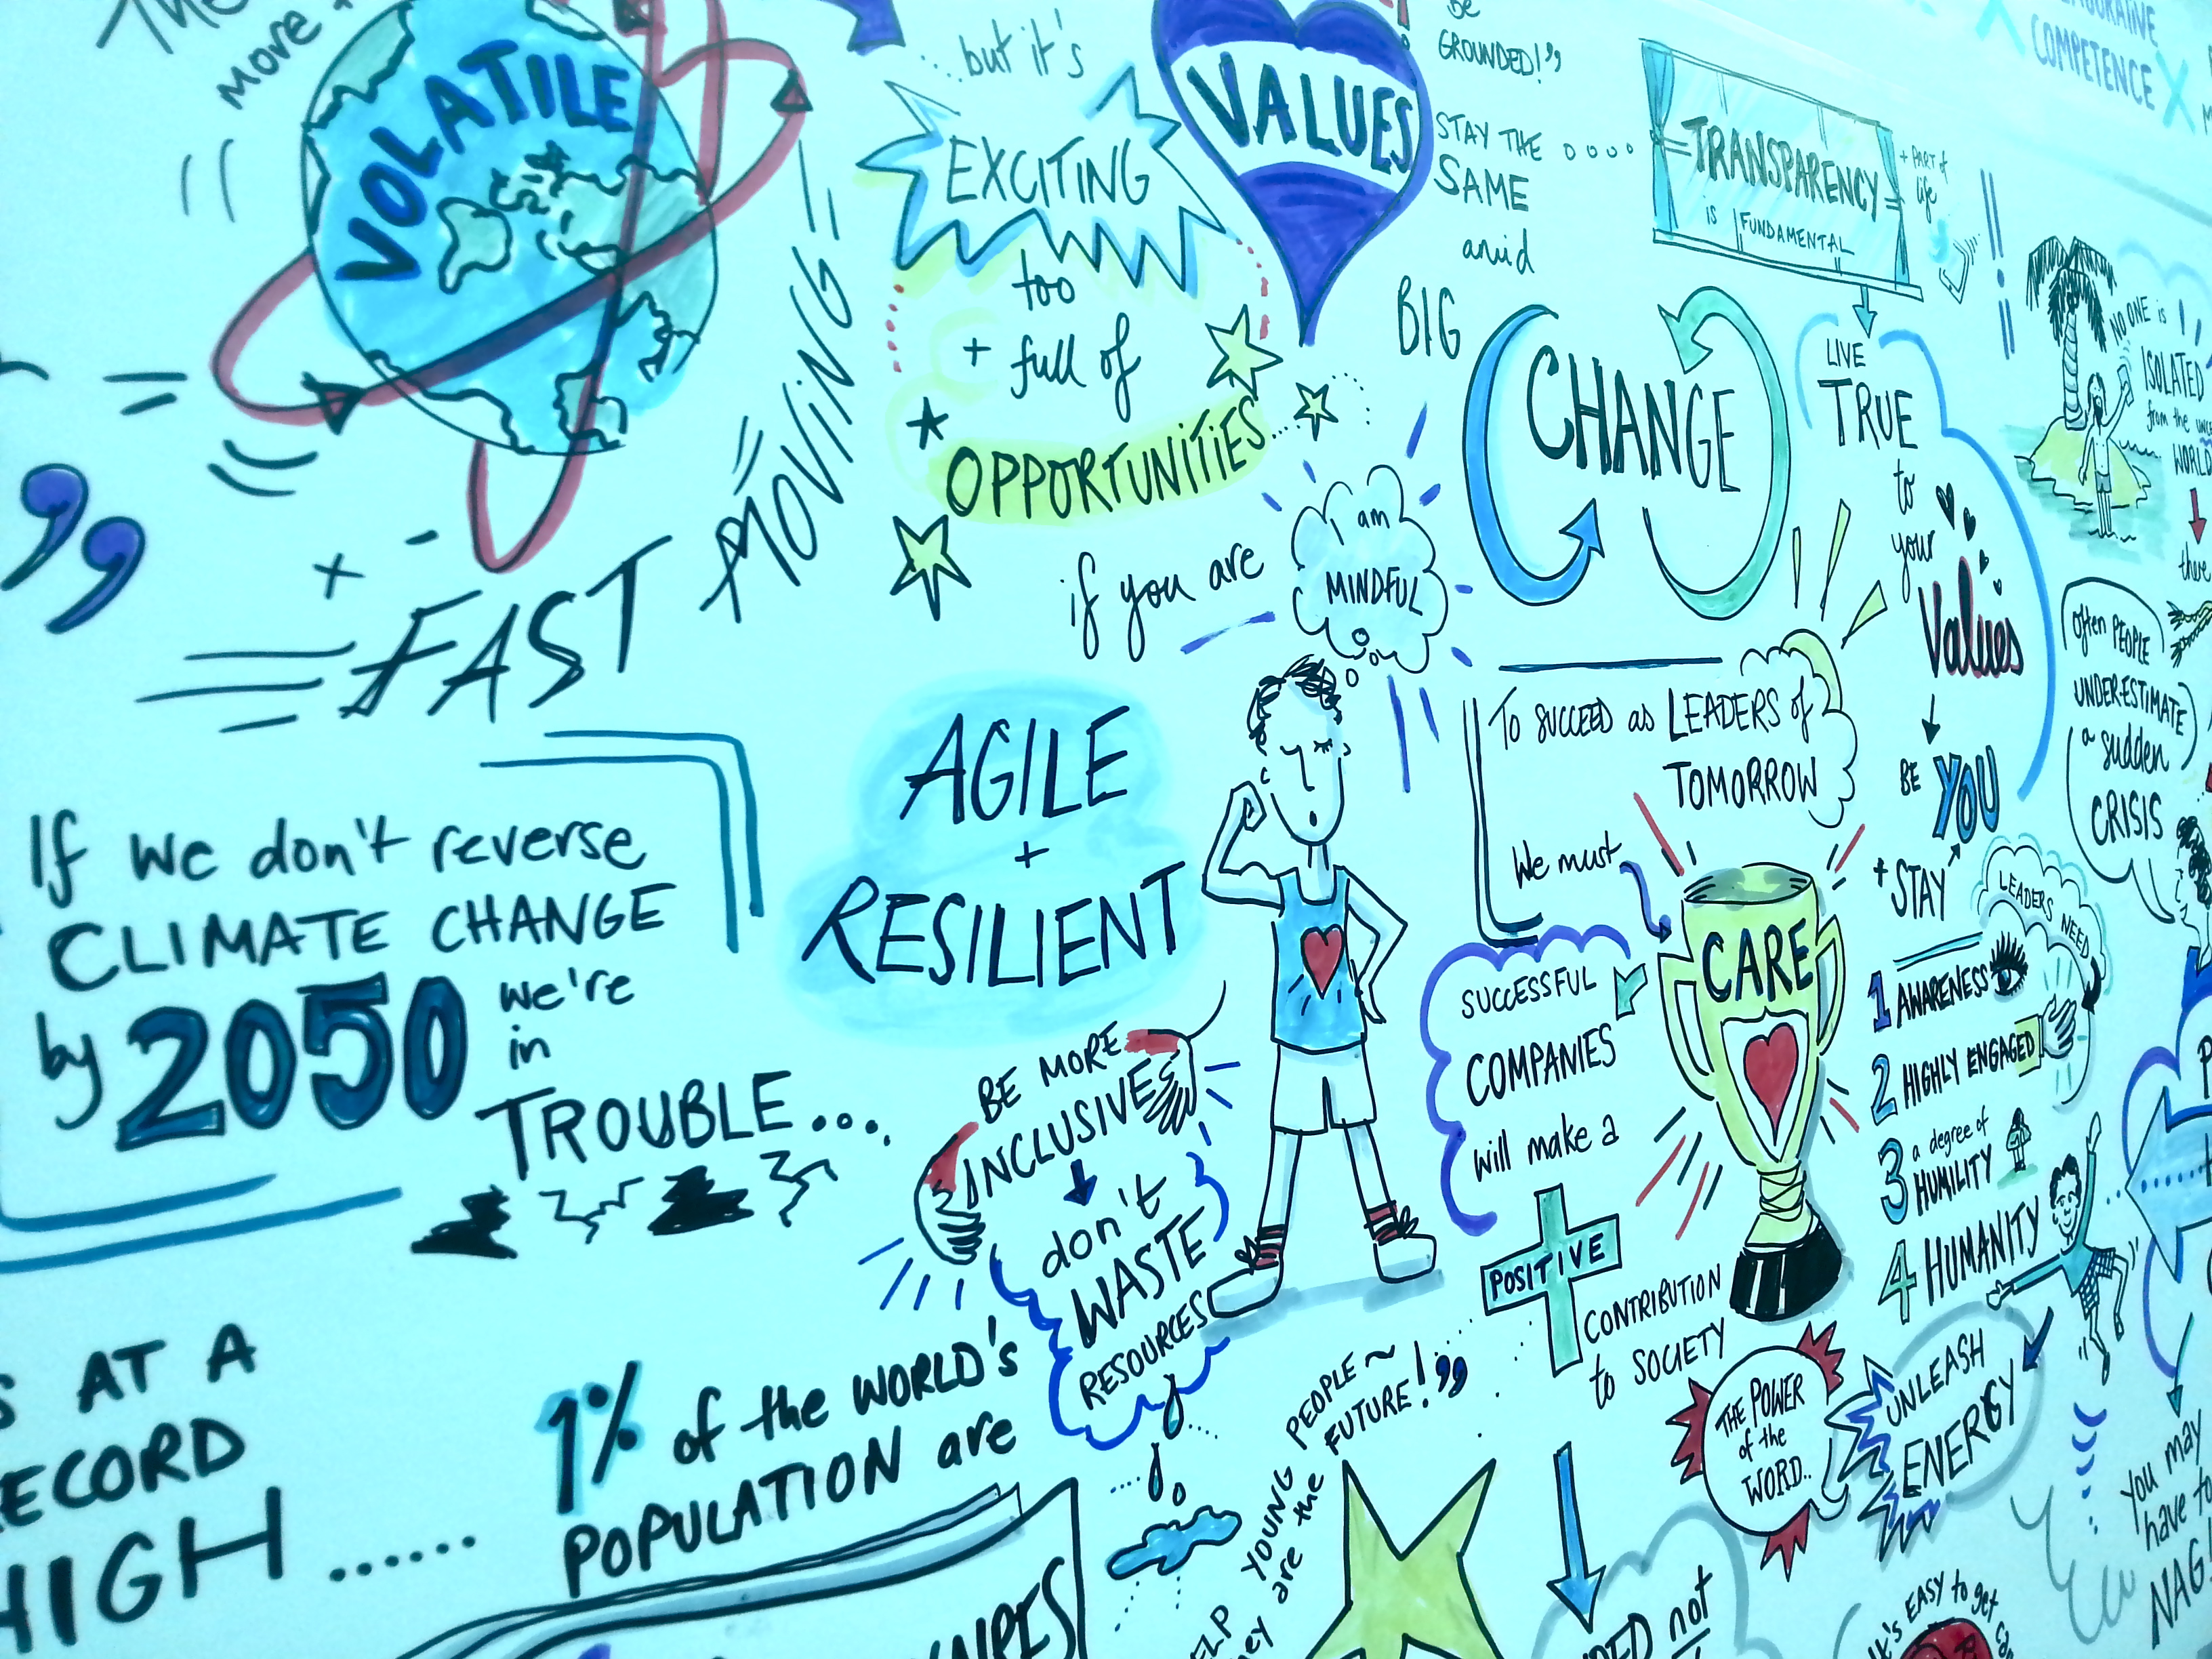 THE
more +
VOLATILE
+
FAST
+ MOVING
If we don't reverse
CLIMATE CHANGE
by 2050 we're
in
TROUBLE...
AT A
RECORD
HIGH ......
1% of the WORLD'S
POPULATION are
... but it's
EXCITING
too
+ full of
OPPORTUNITIES
if you are
I am
MINDFUL
AGILE
+
RESILIENT
BE MORE
INCLUSIVE
don't
WASTE
RESOURCES
YOUNG PEOPLE ~
are the FUTURE! ”
VALUES
Be
GROUNDED! ”
STAY THE
SAME
amid
BIG
CHANGE
TRANSPARENCY
is FUNDAMENTAL
+ PART of
life
LIVE
TRUE
to
your
Values
BE YOU
+ STAY
To SUCCEED as LEADERS of
TOMORROW
We must
CARE
SUCCESSFUL
COMPANIES
will make a
POSITIVE
CONTRIBUTION
to SOCIETY
LEADERS NEED
1 AWARENESS
2 HIGHLY ENGAGED
3 a degree of
HUMILITY
4 HUMANITY
THE POWER
of the
WORD..
UNLEASH
ENERGY
COMPETENCE
NO ONE is
ISOLATED
from the
WORLD
there
often PEOPLE
UNDERESTIMATE
a sudden
CRISIS
You may
have to
NAG!
not
It's EASY to get